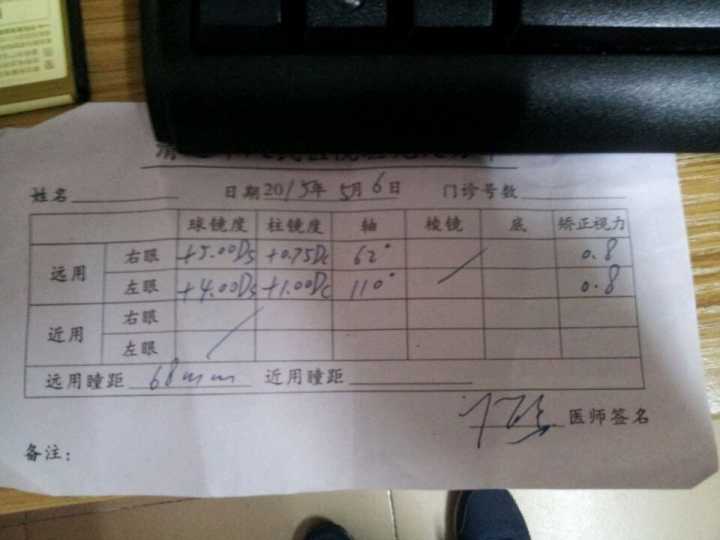 姓名 日期2015年5月6日 门诊号数
球镜度 柱镜度 轴 棱镜 底 矫正视力
远用 右眼 +5.00Ds +0.75Dc 62° 0.8
左眼 +4.00Ds +1.00Dc 110° 0.8
近用 右眼
左眼
远用瞳距 68mm 近用瞳距
医师签名
备注: